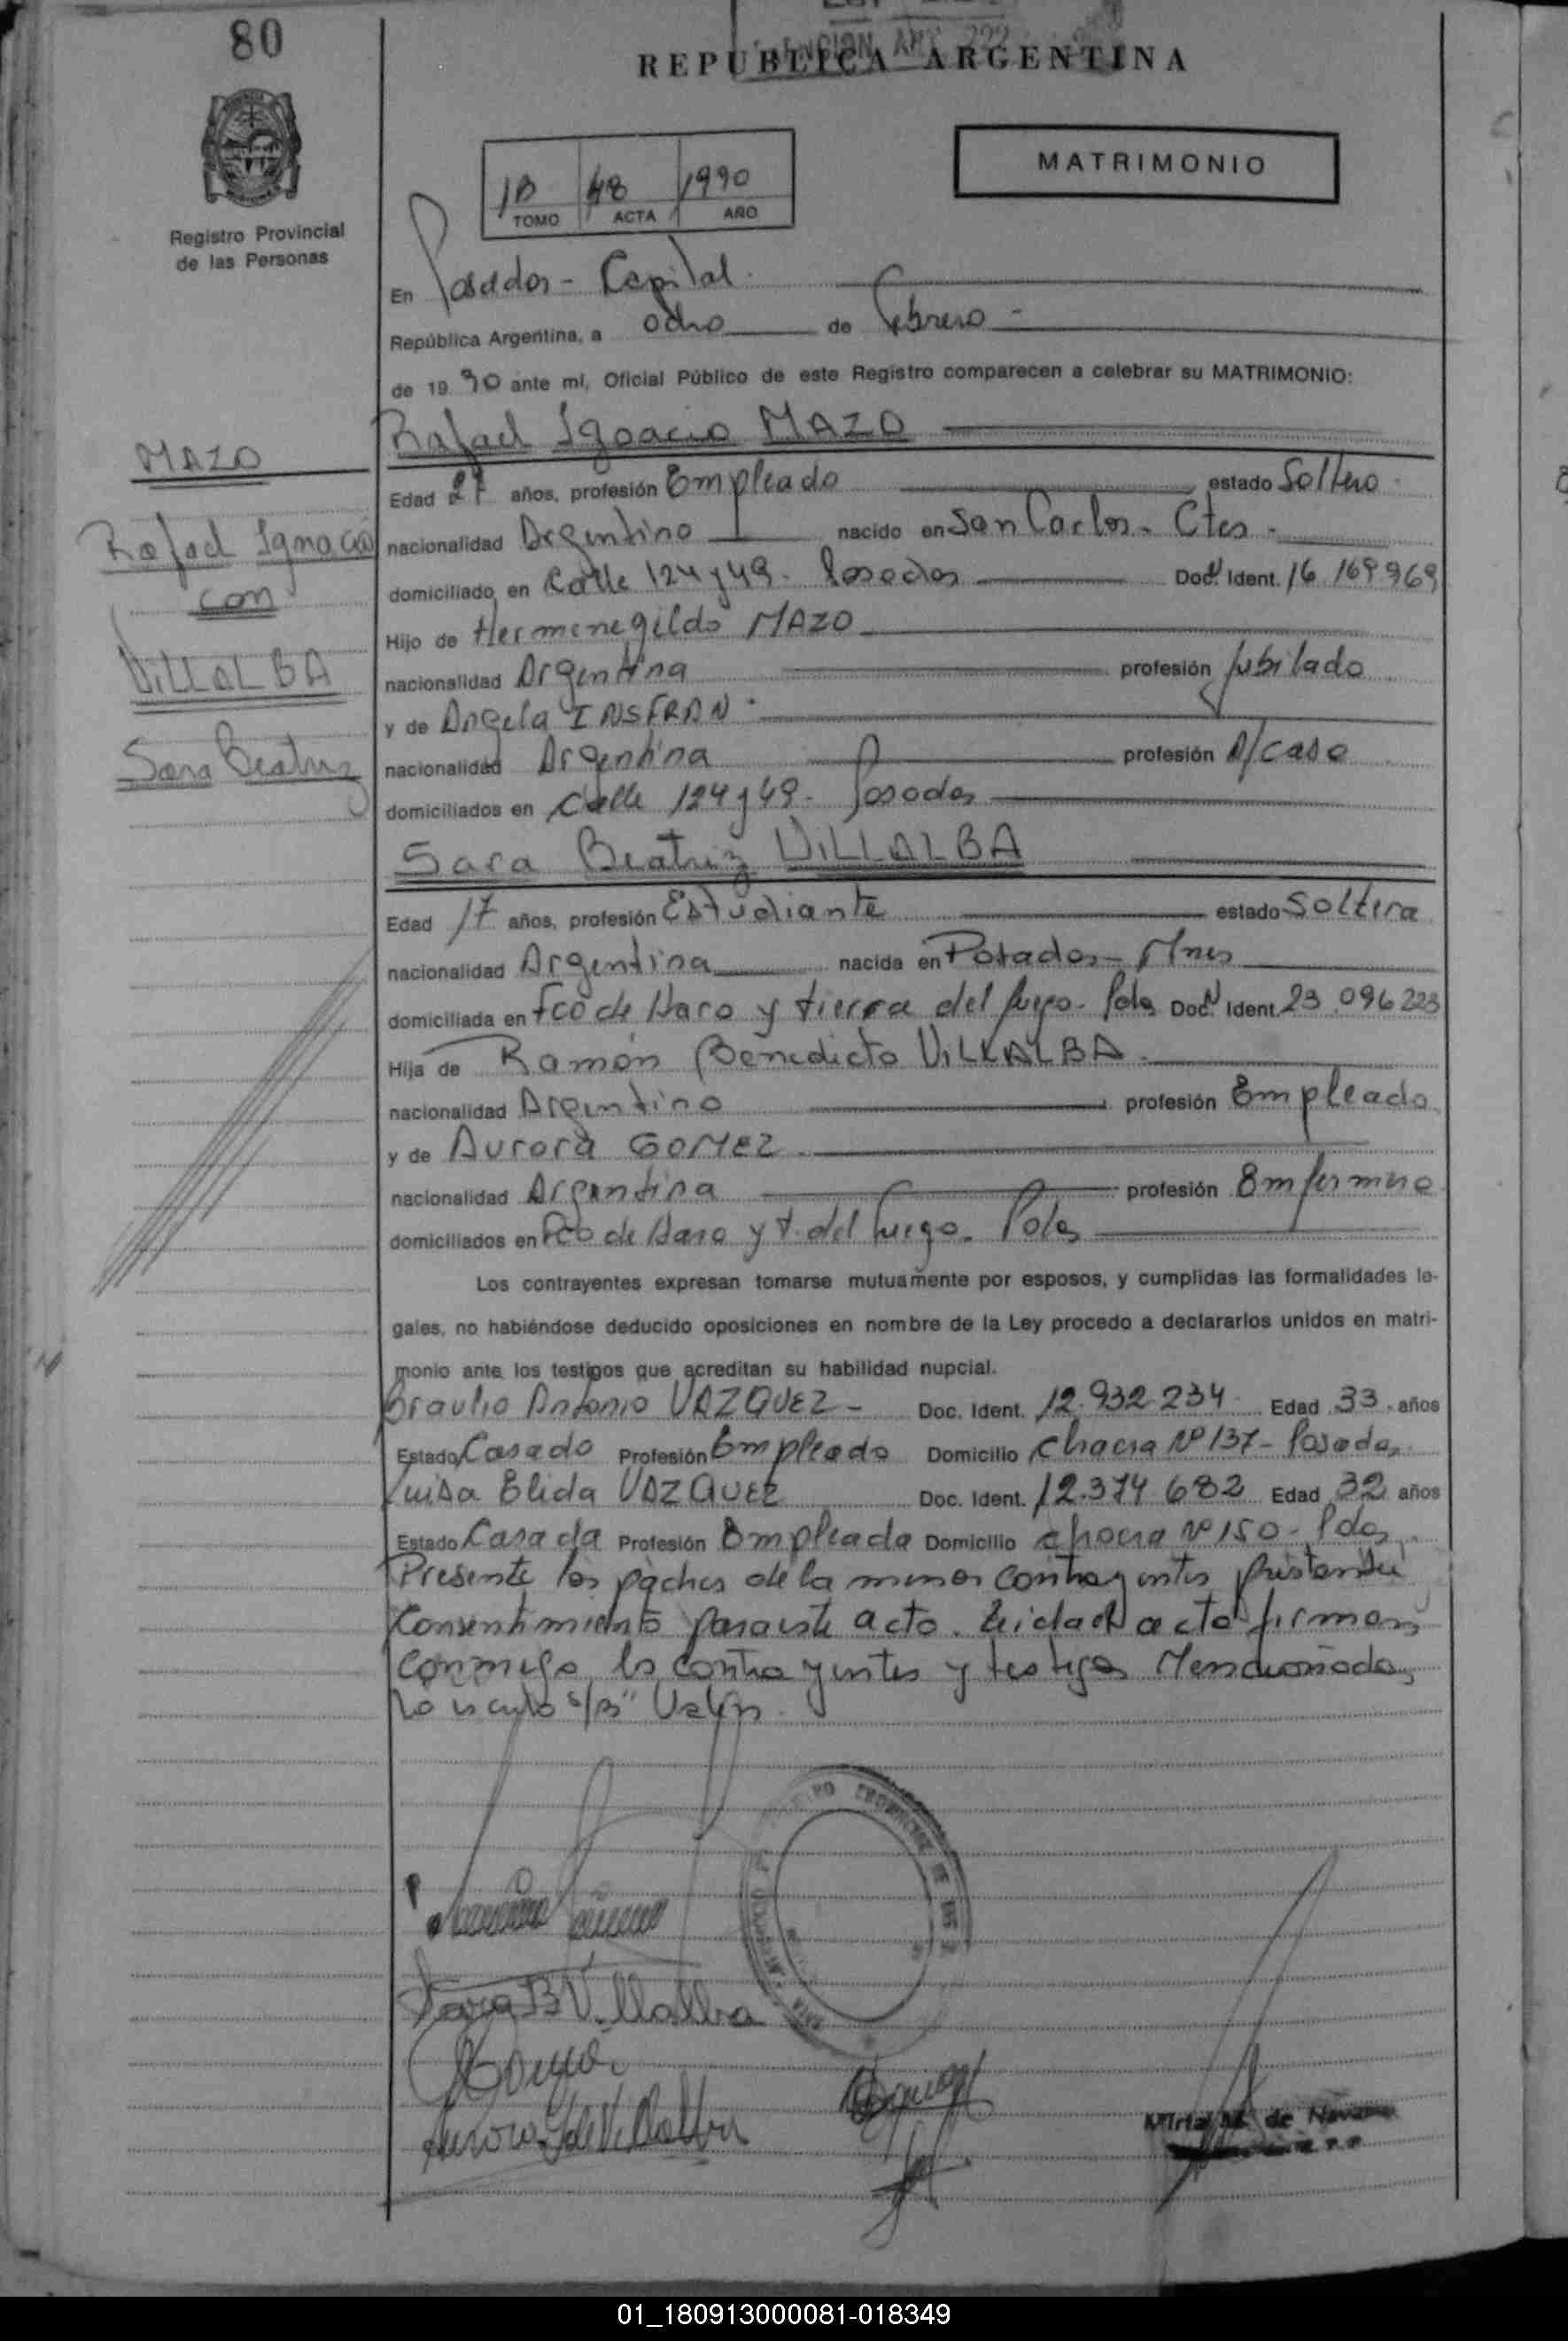 80
REPUBLICA ARGENTINA
MATRIMONIO
1B 48 1990
TOMO ACTA AÑO
Registro Provincial
de las Personas
En Posadas - Capital.
República Argentina, a ocho de Febrero -
de 1990 ante mí, Oficial Público de este Registro comparecen a celebrar su MATRIMONIO:
Rafael Ignacio MAZO
MAZO
Rafael Ignacio
con
VILLALBA
Sara Beatriz
Edad 27 años, profesión Empleado estado Soltero
nacionalidad Argentino nacido en San Carlos - Ctes -
domiciliado en Calle 124 y 49 - Posadas Doc. Ident. 16.169.969
Hijo de Hermenegildo MAZO
nacionalidad Argentina profesión Jubilado
y de Angela INSFRAN
nacionalidad Argentina profesión A/casa
domiciliados en Calle 124 y 49 - Posadas
Sara Beatriz VILLALBA
Edad 17 años, profesión Estudiante estado Soltera
nacionalidad Argentina nacida en Posadas - Mnes
domiciliada en Fco de Haro y tierra del fuego - Pdas Doc. Ident. 23.096.223
Hija de Ramón Benedicto VILLALBA.
nacionalidad Argentino profesión Empleado
y de Aurora GOMEZ
nacionalidad Argentina profesión Emfermera
domiciliados en Fco de Haro y t. del fuego - Pdas
Los contrayentes expresan tomarse mutuamente por esposos, y cumplidas las formalidades le-
gales, no habiéndose deducido oposiciones en nombre de la Ley procedo a declararlos unidos en matri-
monio ante los testigos que acreditan su habilidad nupcial.
Braulio Antonio VAZQUEZ - Doc. Ident. 12.932.234 Edad 33 años
Estado Casado Profesión Empleado Domicilio chacra Nº 137 - Posadas
Luisa Elida VAZQUEZ Doc. Ident. 12.374.682 Edad 32 años
Estado Casada Profesión Empleada Domicilio chacra Nº 150 - Pdas
Presente los padres de la menor contrayentes prestan su
consentimiento para este acto. Leida el acta firman
conmigo los contrayentes y testigos Mencionados
Lo s/B" Vale
Sara B Villalba
Aurora G de Villalba
Mirta M. de
01_180913000081-018349